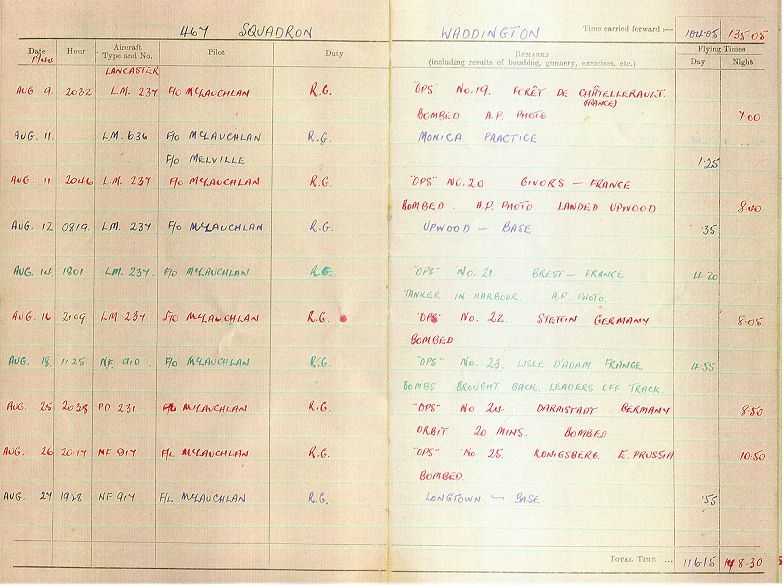 467 SQUADRON WADDINGTON Time carried forward :— 104.05 135.05
Date Hour Aircraft Type and No. Pilot Duty REMARKS (including results of bombing, gunnery, exercises, etc.) Flying Times
Day Night
LANCASTER
AUG 9. 2032 L.M. 237 F/O McLAUCHLAN R.G. "OPS" No. 19. FORÊT DE CHÂTELLERAULT.
(FRANCE)
BOMBED A.P. PHOTO 7.00
AUG. 11. L.M. 636 F/O McLAUCHLAN R.G. MONICA PRACTICE
F/O MELVILLE 1.25
AUG. 11 2046 L.M. 237 F/O McLAUCHLAN R.G. "OPS" NO. 20 GIVORS — FRANCE
BOMBED. A.P. PHOTO LANDED UPWOOD 8.00
AUG. 12 0819 L.M. 237 F/O McLAUCHLAN R.G. UPWOOD — BASE .35
AUG. 14. 1801 L.M. 237 F/O McLAUCHLAN R.G. "OPS" No. 21. BREST — FRANCE 4.20
TANKER IN HARBOUR. A.P. PHOTO.
AUG. 16 2109 LM 237 F/O McLAUCHLAN R.G. "OPS" No. 22. STETTIN GERMANY 8.05
BOMBED
AUG. 18. 1125 NF. 910. F/O McLAUCHLAN R.G. "OPS" No. 23. LISLE D'ADAM. FRANCE 4.55
BOMBS BROUGHT BACK. LEADERS OFF TRACK.
AUG. 25 2038 PD 231 F/L McLAUCHLAN R.G. "OPS" NO 24. DARMSTADT GERMANY 8.50
ORBIT 20 MINS. BOMBED
AUG. 26 2017 NF 917 F/L McLAUCHLAN R.G. "OPS" No 25. KONIGSBERG. E. PRUSSIA 10.50
BOMBED.
AUG. 27 1928 NF 917 F/L McLAUCHLAN R.G. LONGTOWN — BASE .55
TOTAL TIME ... 116.15 178.30